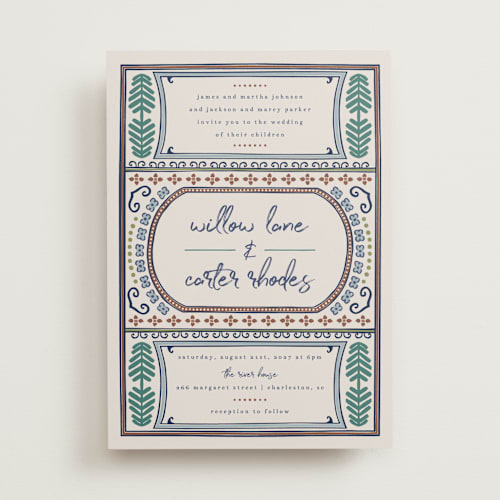 james and martha johnson
and jackson and marcy parker
invite you to the wedding
of their children
willow lane
&
carter rhodes
saturday, august 21st, 2027 at 6pm
the river house
966 margaret street | charleston, sc
reception to follow